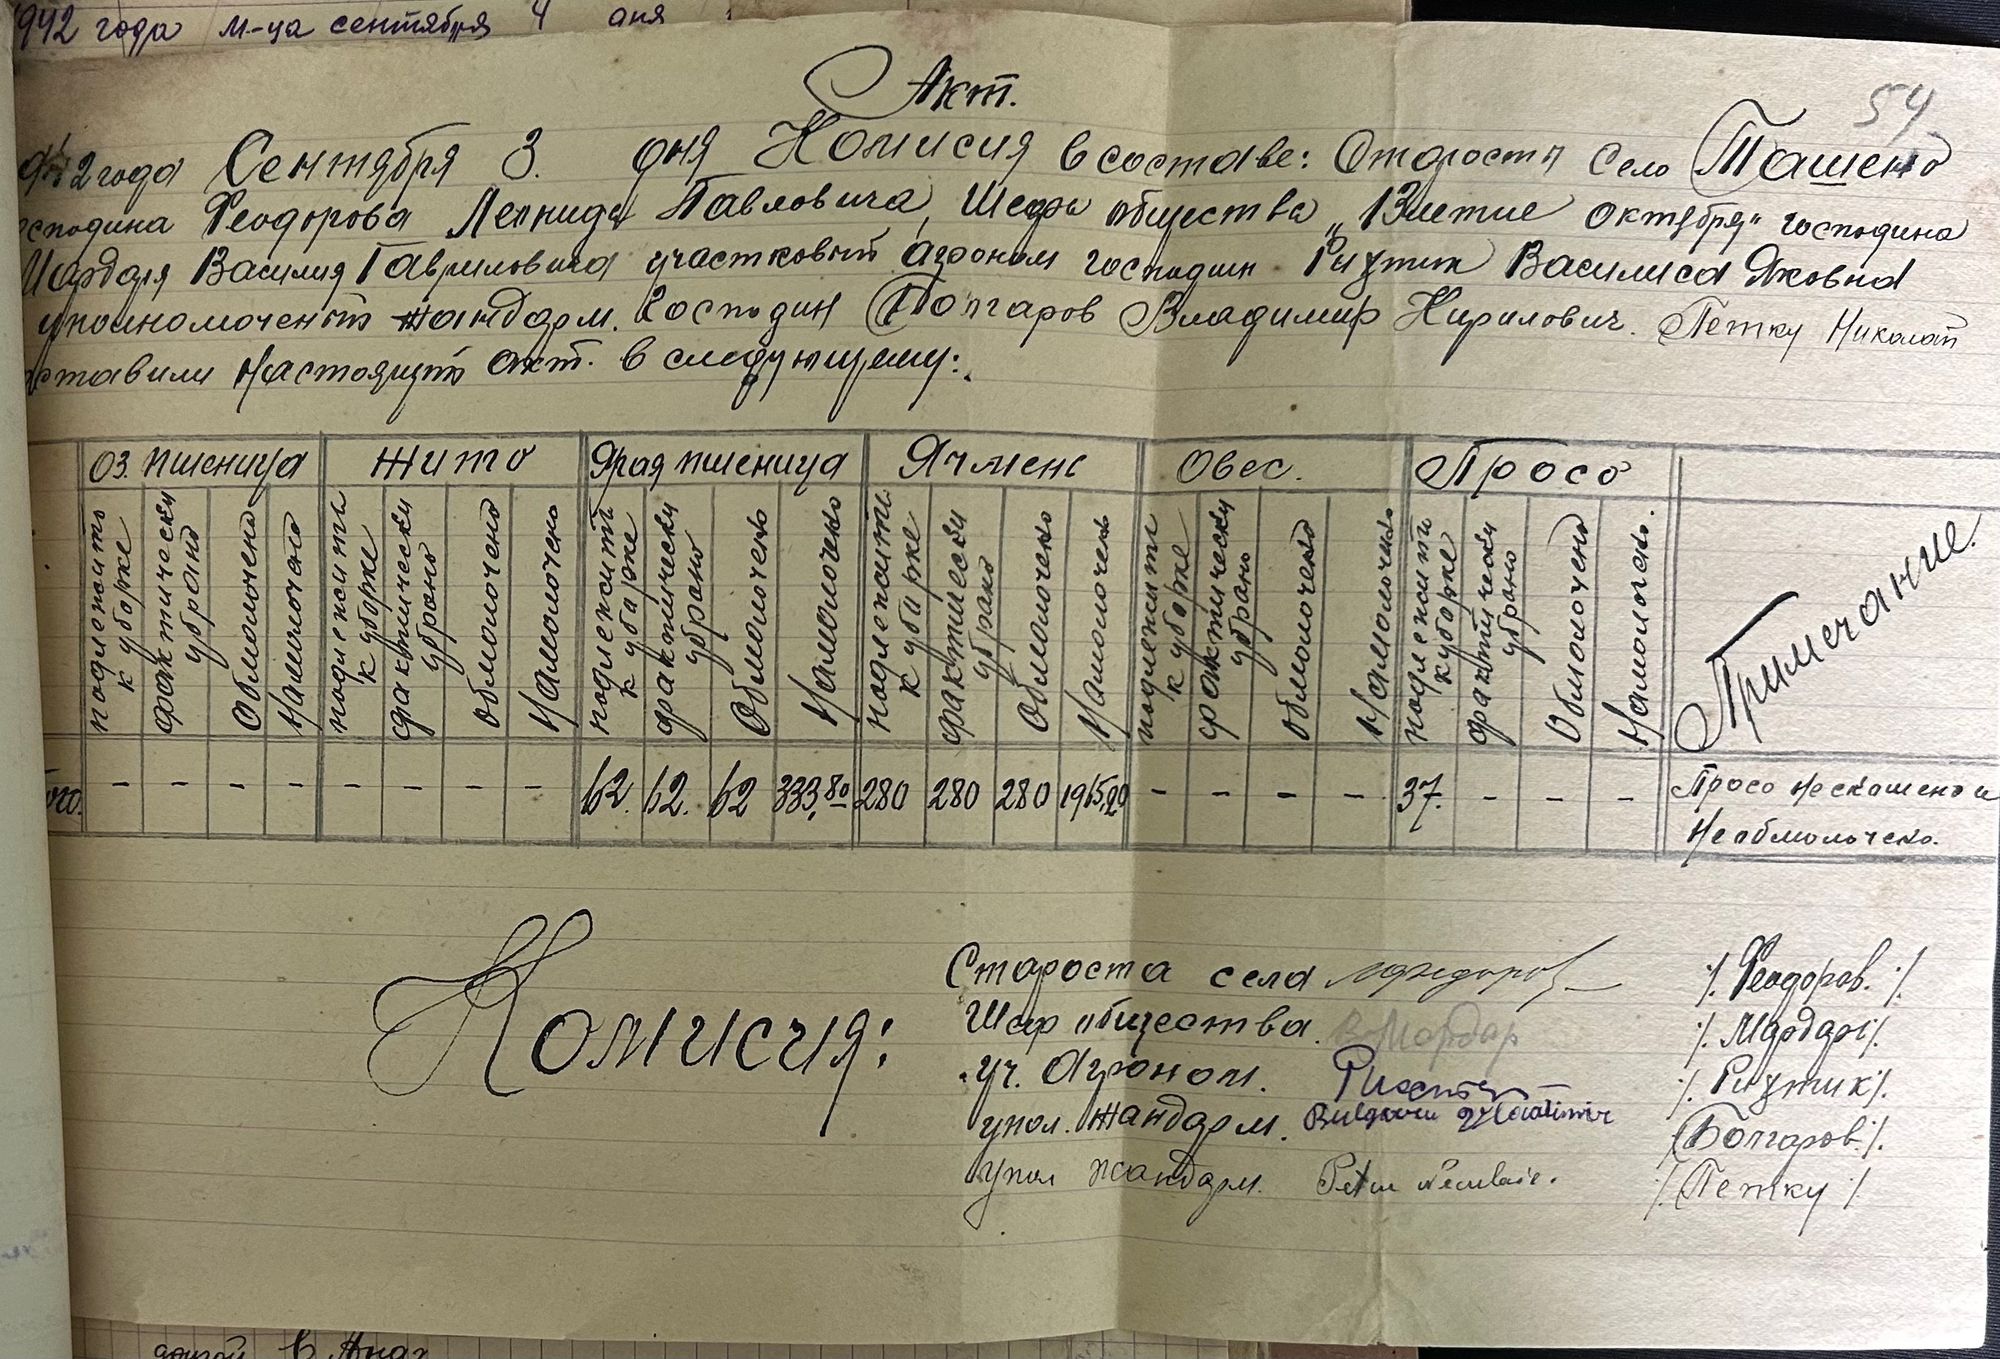 1942 года м-ца сентября 4 дня
54
Акт.
года Сентября 3. дня Комисия в составе: Старосты Село Ташено
Феодорова Леонида Павловича, Шефа общества „Взятие октября" господина
Мардаря Василия Гавриловича участковый агроном господин Василиса Яковна
жандарм. Господин Болгаров Владимир Кирилович. Петку Николай
настоящий акт. в следующему:
Оз. пшеница Жито Ярая пшеница Ячмень Овес. Просо Примечание.
подлежить к уборке фактически убрано Обмолочено Намолочено подлежить к уборке фактически убрано обмолочено Намолочено подлежить к уборке фактически убрано Обмолочено Намолочено подлежить к уборке фактически убрано Обмолочено Намолочено подлежить к уборке фактически убрано обмолочено Намолочено подлежить к уборке фактически убрано Обмолочено Намолочено.
- - - - - - - - 62. 62. 62 333,80 280 280 280 - - - - 37. - - - Просо нескошено и
Необмолочено.
Комисия:
Староста села /. Феодоров. /.
Шеф общества. В Мардар /. Мардарь /.
уч. Агроном. /. /.
упол. жандарм. /. Болгаров /.
упол жандарм. Petcu Neculaie. /. Петку /.